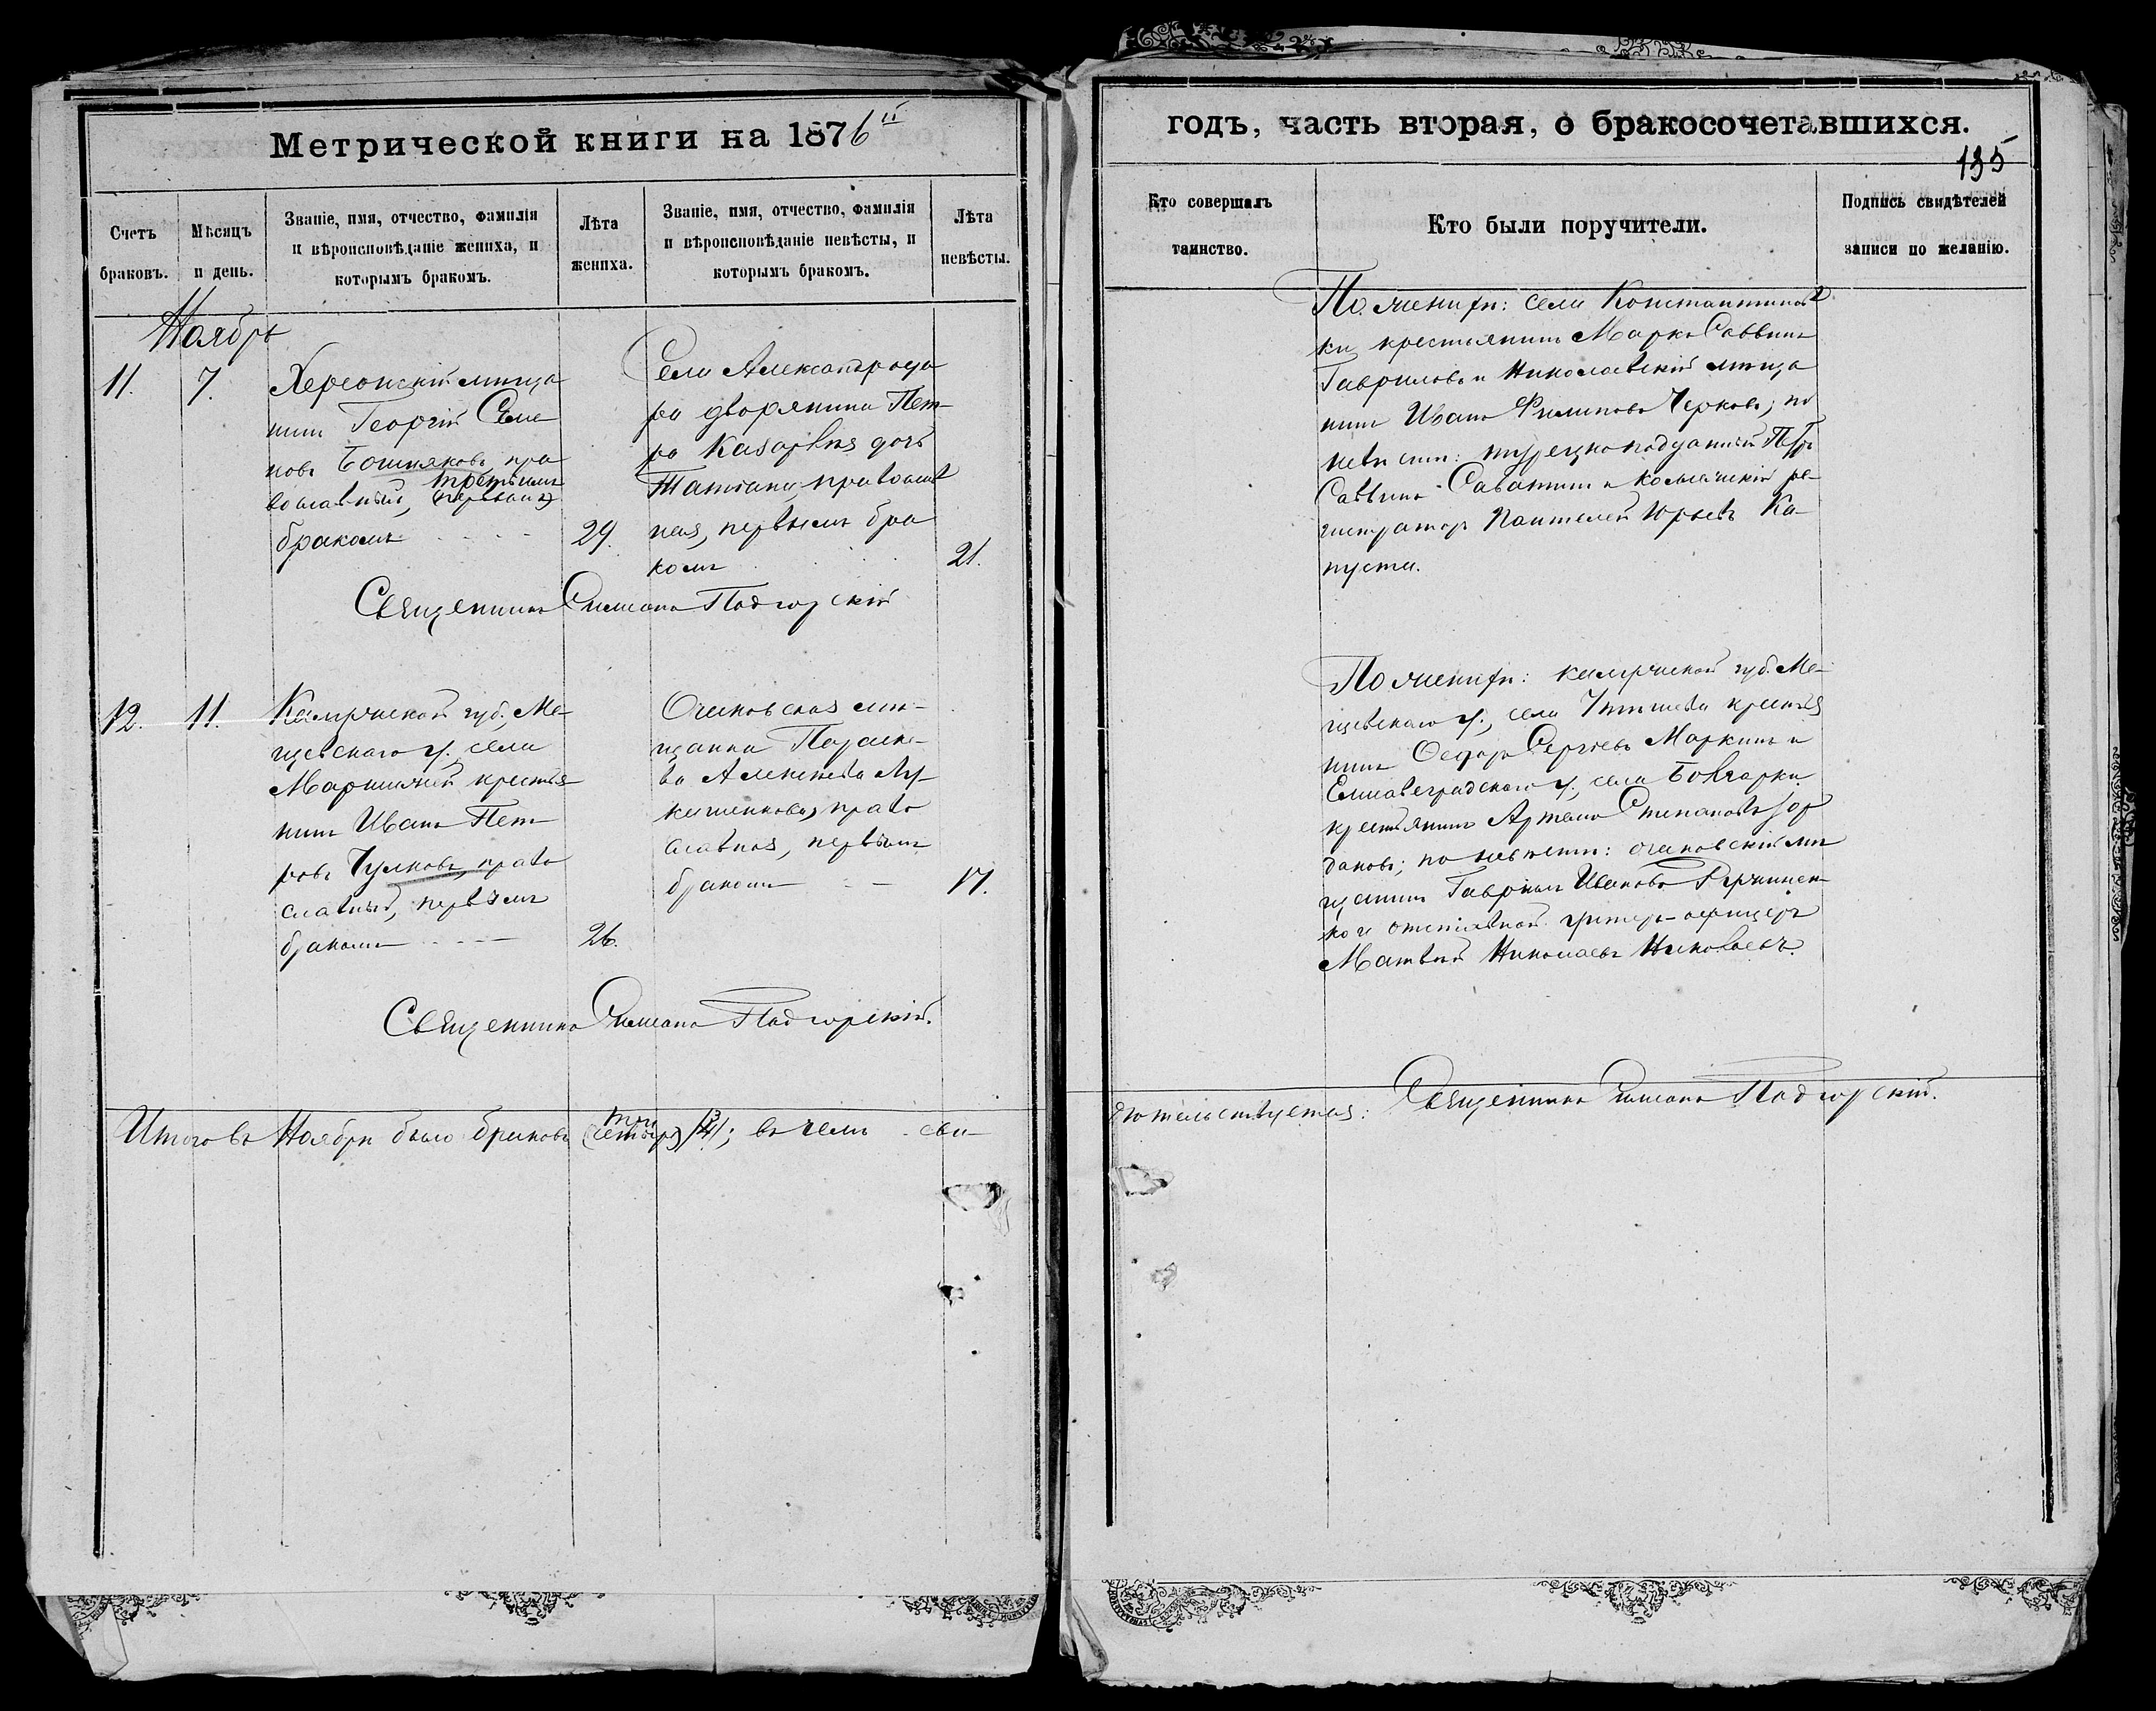 Метрической книги на 1876й
годъ, часть вторая, о бракосочетавшихся.
135
Счетъ браковъ.
Мѣсяцъ и день.
Званіе, имя, отчество, фамилія
и вѣроисповѣданіе жениха, и
которымъ бракомъ.
Лѣта жениха.
Званіе, имя, отчество, фамилія
и вѣроисповѣданіе невѣсты, и
которымъ бракомъ.
Лѣта невѣсты.
Кто совершалъ
таинство.
Кто были поручители.
Подпись свидѣтелей
записи по желанію.
Ноябрь
11.
7.
Херсонскій мѣща
нинъ Георгій Семе
новъ Бошняковъ, пра
третьимъ
вославный, (первымъ)
бракомъ
29.
Села Александродa
ра дворянина Пет-
ра дочь
Татіана, православ
ная, первымъ бра
комъ
21.
Священникъ Симеонъ Подгорскій
По женихѣ: села Константинов
ки крестьянинъ Марко Саввинъ
Гавриловъ и Николаевскій мѣща
нинъ Иванъ Филиповъ Черковъ; по
невѣстѣ: турецкоподданный Петръ
Саввинъ Саватинъ и колежскій ре-
гистраторъ Пантелей Юрьевъ Ка-
пуста.
12.
11.
Калужской губ., Ме-
щевскаго у., села
Мармыжей крестья
нинъ Иванъ Пет-
ровъ Чулковъ, право
славный, первымъ
бракомъ
26.
Очаковская мѣ-
щанка Параске-
ва Алексѣева Лу-
кашенкова, право
славная, первымъ
бракомъ
17.
Священникъ Симеонъ Подгорскій.
По женихѣ: калужской губ. Ме-
щевскаго у., села крестья
нинъ Ѳедоръ Сергѣевъ Маркинъ и
Елисаветградскаго у., села Болгарки
крестьянинъ Артемъ Степановъ Іор
дановъ; по невѣстѣ: очаковскій мѣ
щанинъ Гавріилъ Ивановъ
ко и отставной унтеръ-офицеръ
Матвѣй Николаевъ Николаевъ.
три 3
Итого въ Ноябрѣ было браковъ (четыре) 4; въ чемъ сви-
дѣтельствуется: Священникъ Симеонъ Подгорскій.